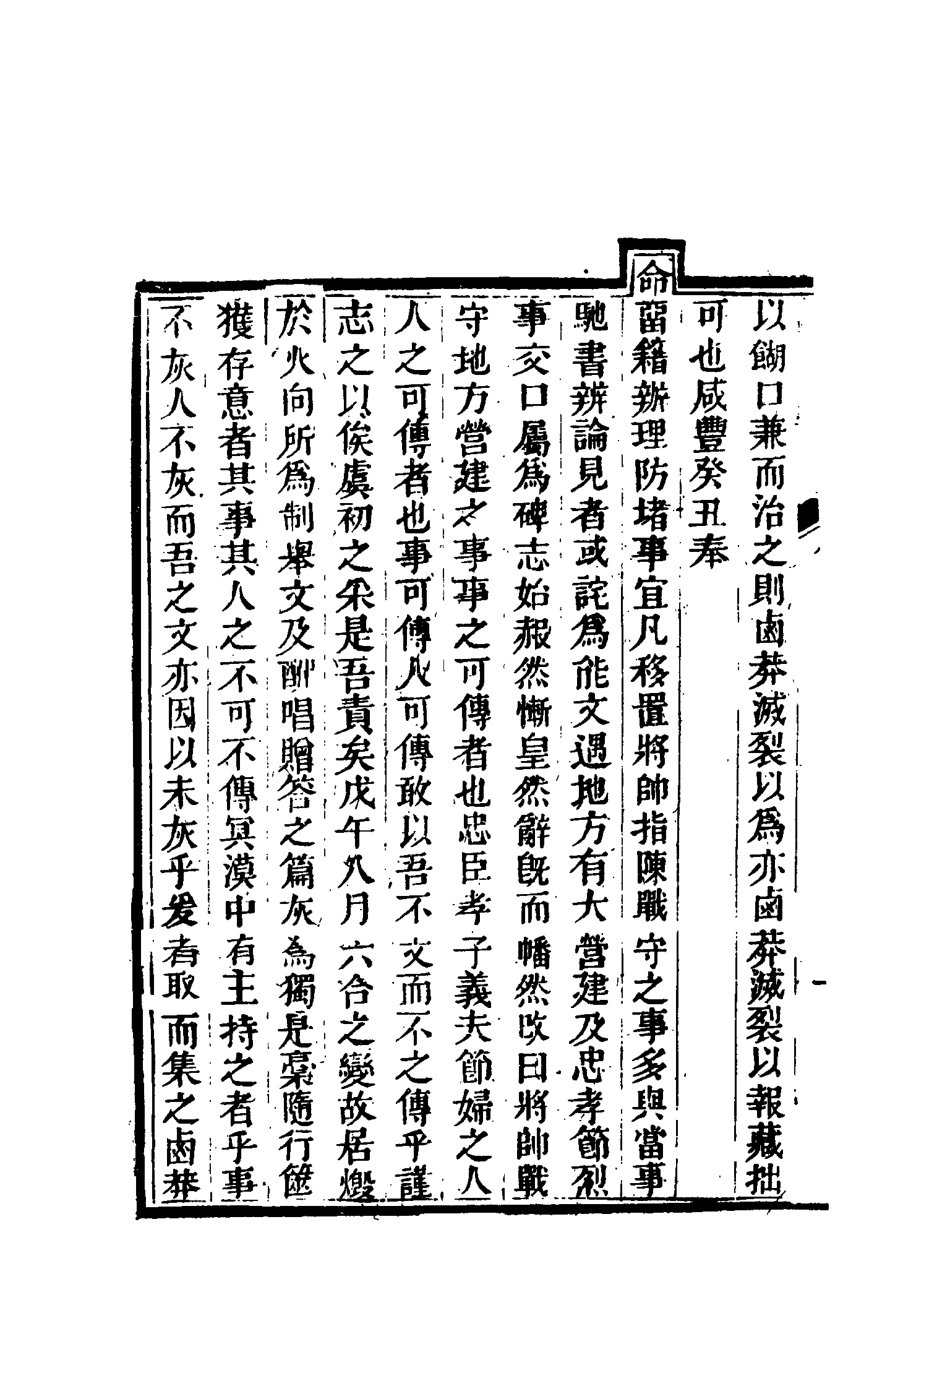 以餬口兼而治之則鹵莽滅裂以爲亦鹵莽滅裂以報藏拙
可也咸豐癸丑奉
命畱籍辦理防堵事宜凡移置將帥指陳戰守之事多與當事
馳書辨論見者或詫爲能文遇地方有大營建及忠孝節烈
事交口屬爲碑志始赧然慚皇然辭旣而幡然改曰將帥戰
守地方營建之事事之可傳者也忠臣孝子義夫節婦之人
人之可傳者也事可傳人可傳敢以吾不文而不之傳乎謹
志之以俟虞初之采是吾責矣戊午八月六合之變故居燬
於火向所爲制舉文及酬唱贈答之篇灰爲獨是稾隨行篋
獲存意者其事其人之不可不傳冥漠中有主持之者乎事
不灰人不灰而吾之文亦因以未灰乎爰者取而集之鹵莽